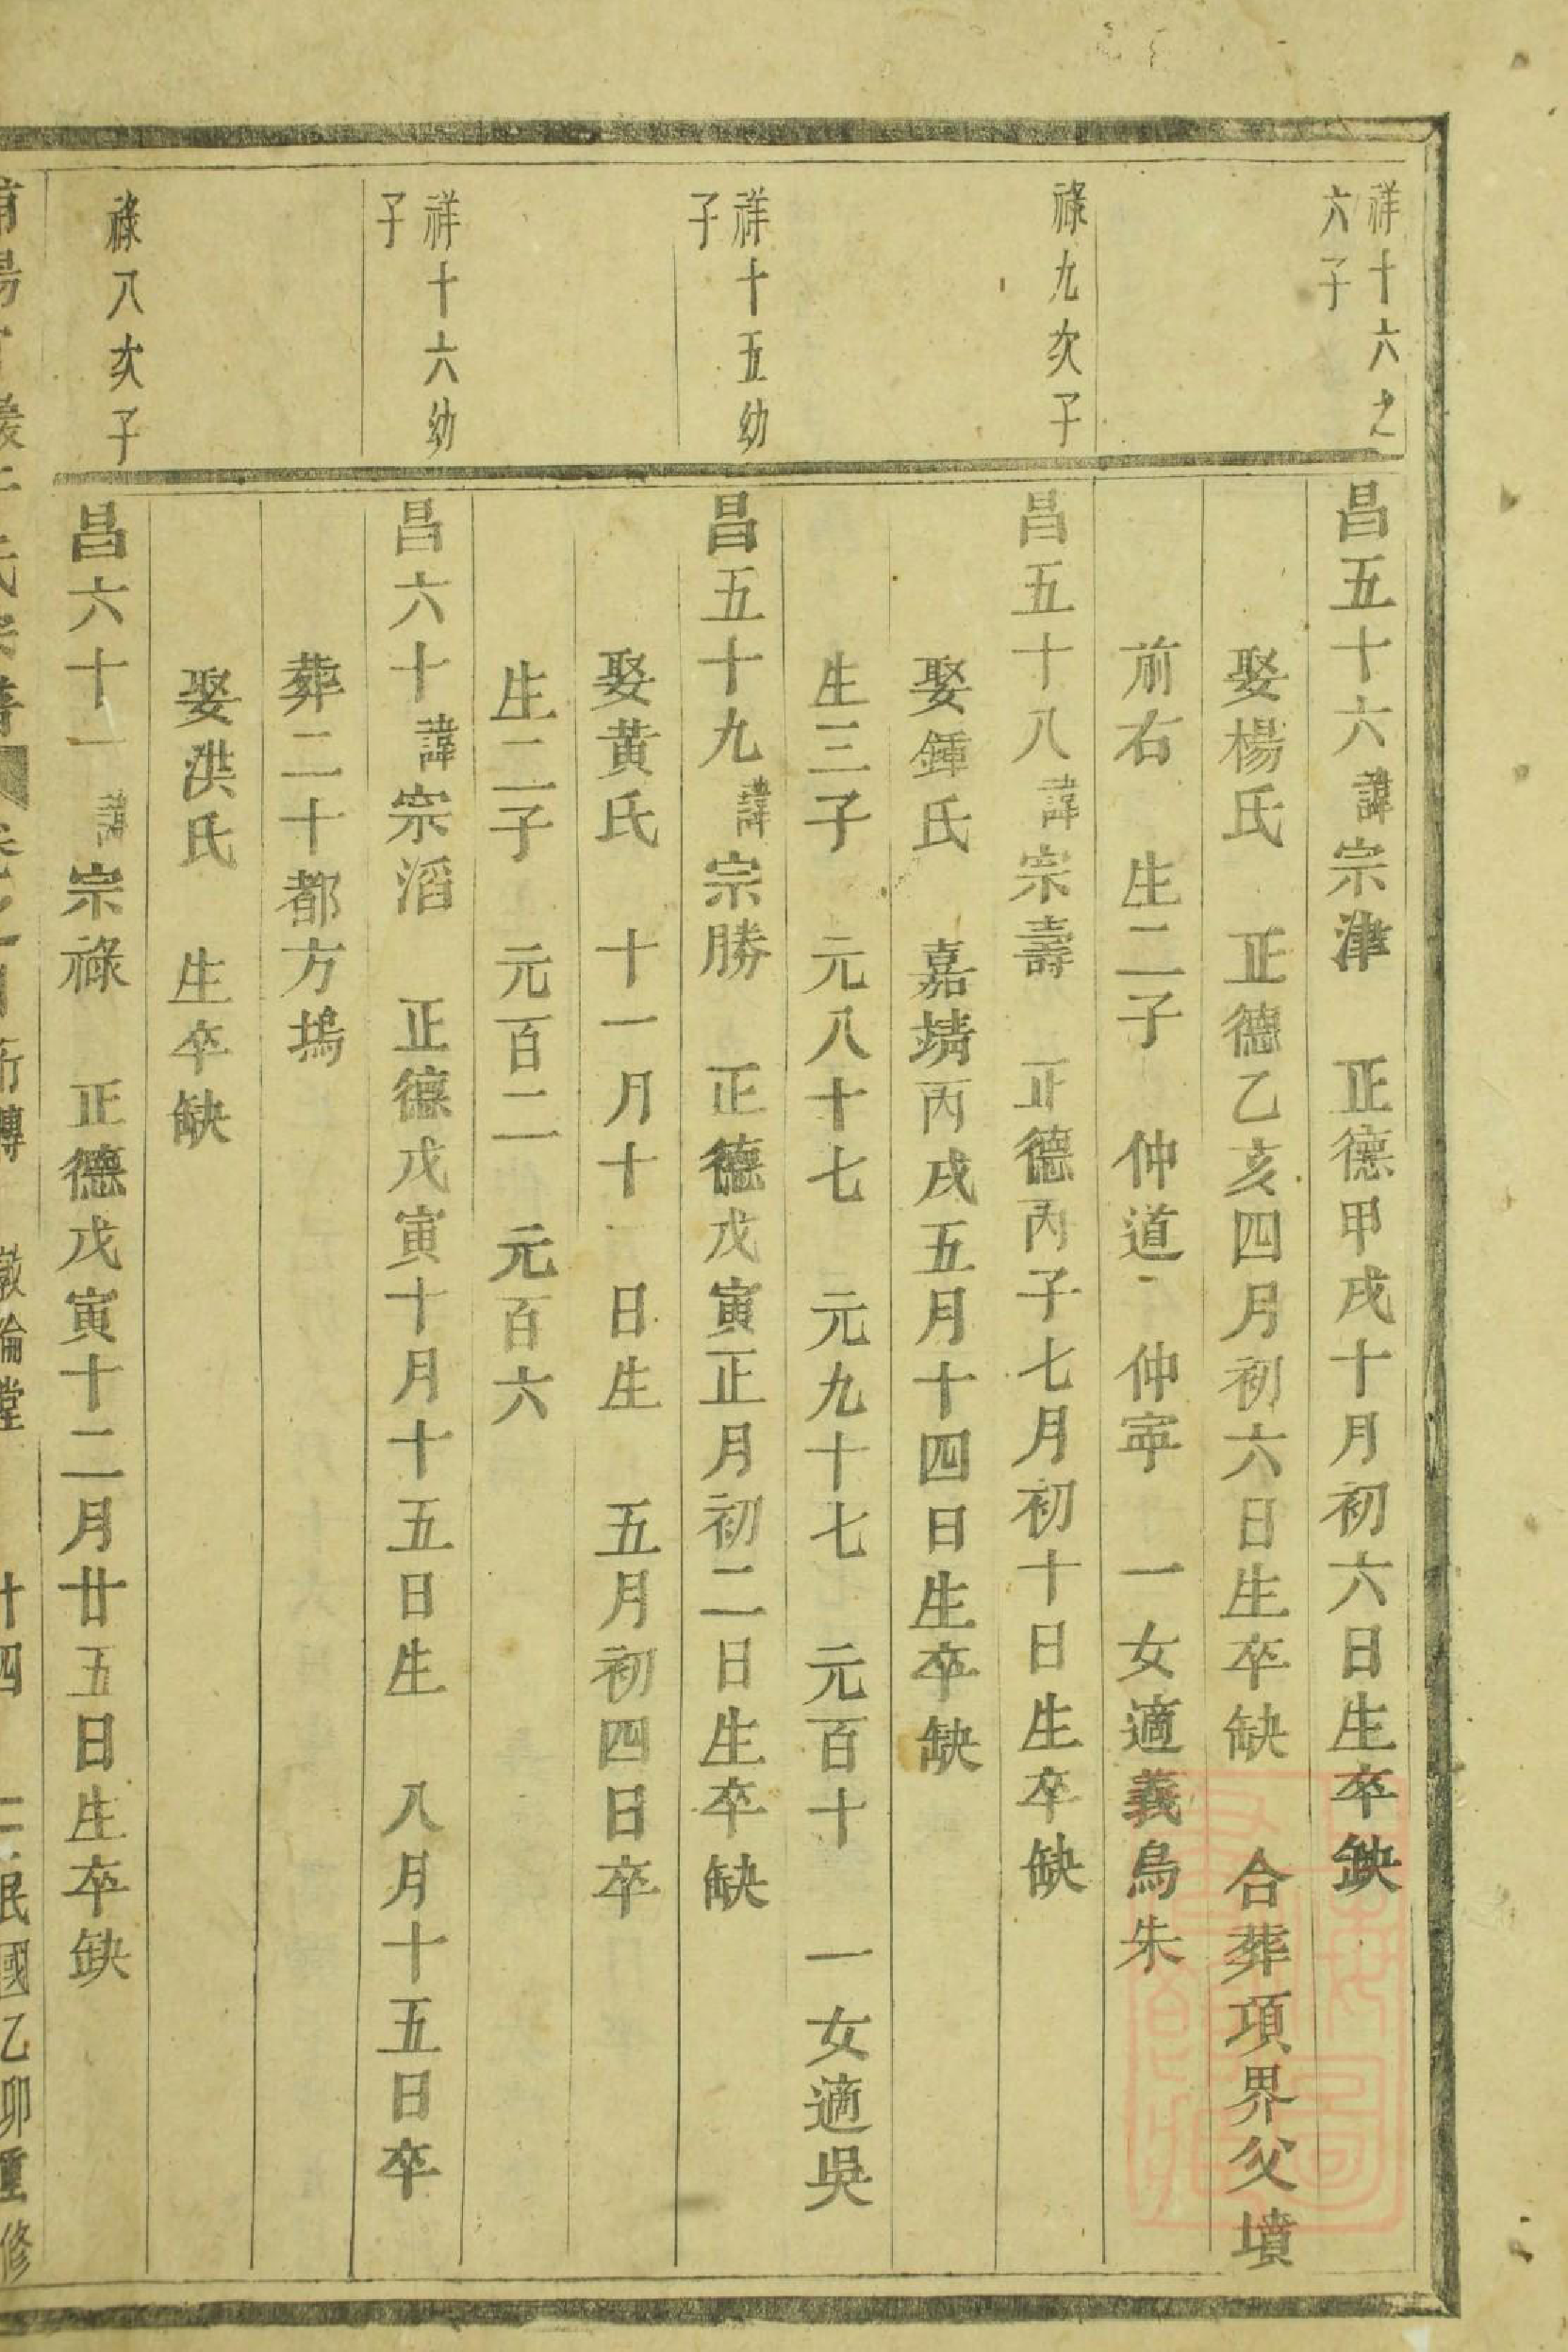 祥十六之
六子
昌五十六諱宗津 正德甲戌十月初六日生卒缺
娶楊氏 正德乙亥四月初六日生卒缺 合葬項界父墳
前右 生二子 仲道 仲寕 一女適義烏朱
祿九次子
昌五十八諱宗壽 正德丙子七月初十日生卒缺
娶鍾氏 嘉靖丙戌五月十四日生卒缺
生三子 元八十七 元九十七 元百十 一女適吳
祥十五幼
子
昌五十九諱宗勝 正德戊寅正月初二日生卒缺
娶黃氏 十一月十一日生 五月初四日卒
生二子 元百二 元百六
祥十六幼
子
昌六十諱宗滔 正德戊寅十月十五日生 八月十五日卒
葬二十都方塢
娶洪氏 生卒缺
祿八次子
昌六十一諱宗祿 正德戊寅十二月廿五日生卒缺
敦倫堂 廿四 民國乙卯重修